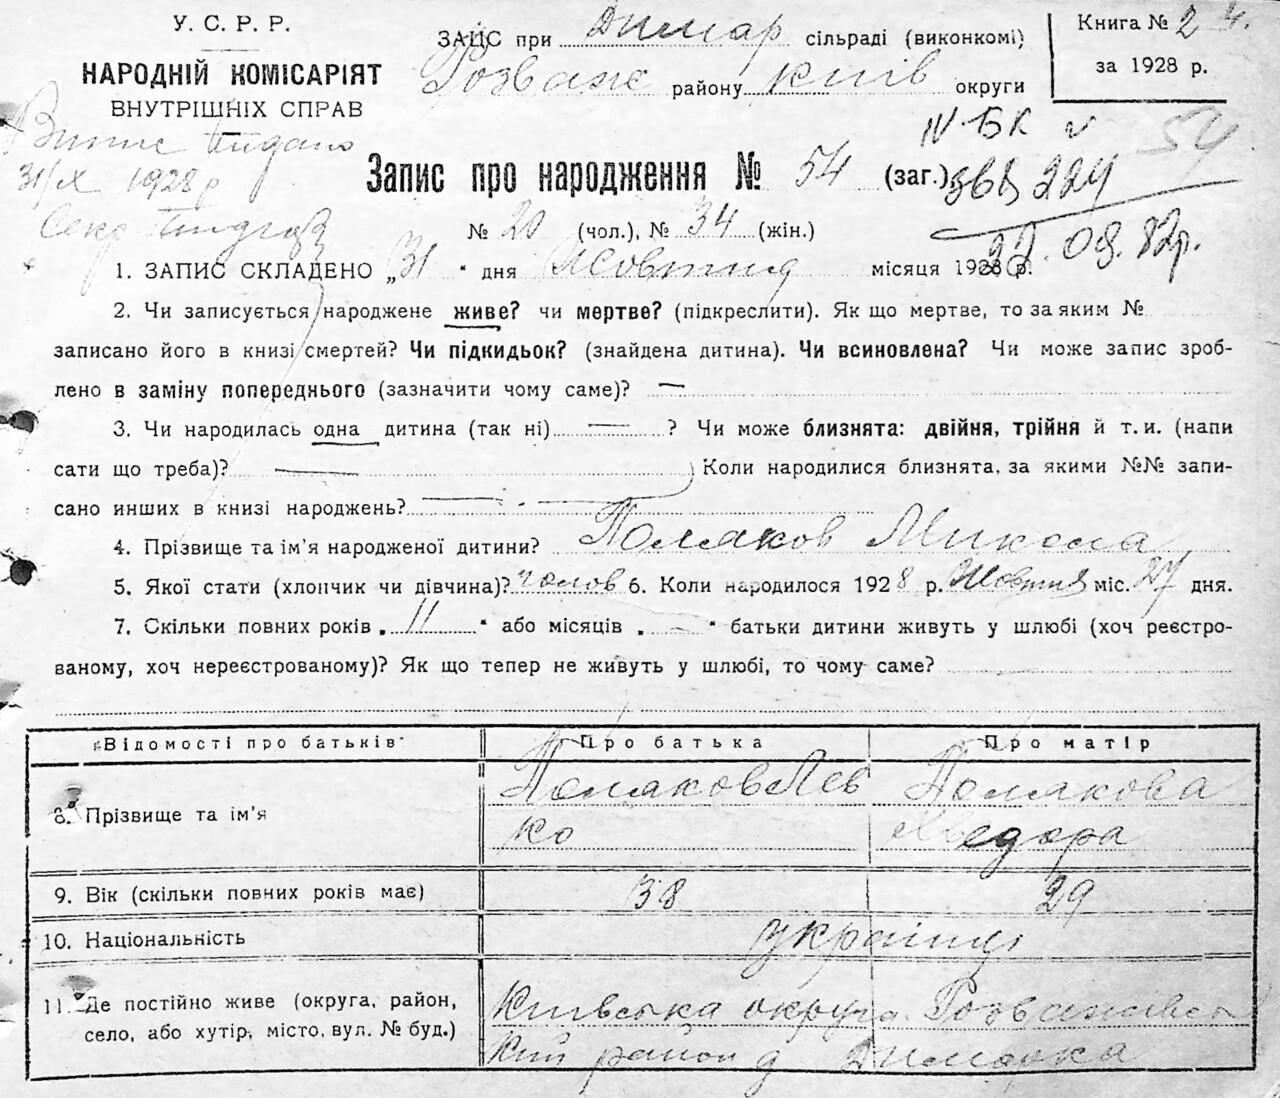 У. С. Р. Р.
НАРОДНІЙ КОМІСАРІЯТ
ВНУТРІШНІХ СПРАВ
ЗАЦС при Димар сільраді (виконкомі)
Розваж району Київ округи
Книга № 2
за 1928 р.
31/X 1928 р
IV БК
54
Запис про народження № 54 (заг.),
224
№ 20 (чол.), № 34 (жін.)
27.09.82р.
1. ЗАПИС СКЛАДЕНО „31“ дня Жовтня місяця 1928 р.
2. Чи записується народжене живе? чи мертве? (підкреслити). Як що мертве, то за яким №
записано його в книзі смертей? Чи підкидьок? (знайдена дитина). Чи всиновлена? Чи може запис зроб-
лено в заміну попереднього (зазначити чому саме)? —
3. Чи народилась одна дитина (так ні) — ? Чи може близнята: двійня, трійня й т. и. (напи
сати що треба)? — Коли народилися близнята, за якими №№ запи-
сано инших в книзі народжень? —
4. Прізвище та ім'я народженої дитини? Поляков Микола
5. Якої стати (хлопчик чи дівчина)? чолов 6. Коли народилося 1928 р. Жовтня міс. 27 дня.
7. Скільки повних років „11“ або місяців „—“ батьки дитини живуть у шлюбі (хоч реєстро-
ваному, хоч нереєстрованому)? Як що тепер не живуть у шлюбі, то чому саме?
Відомості про батьків Про батька Про матір
8. Прізвище та ім'я Поляков Лев Полякова
ко Хведора
9. Вік (скільки повних років має) 38 29
10. Національність україці
11. Де постійно живе (округа, район, Київська округа Розважівсь
село, або хутір, місто, вул. № буд.) кий район д Димарка